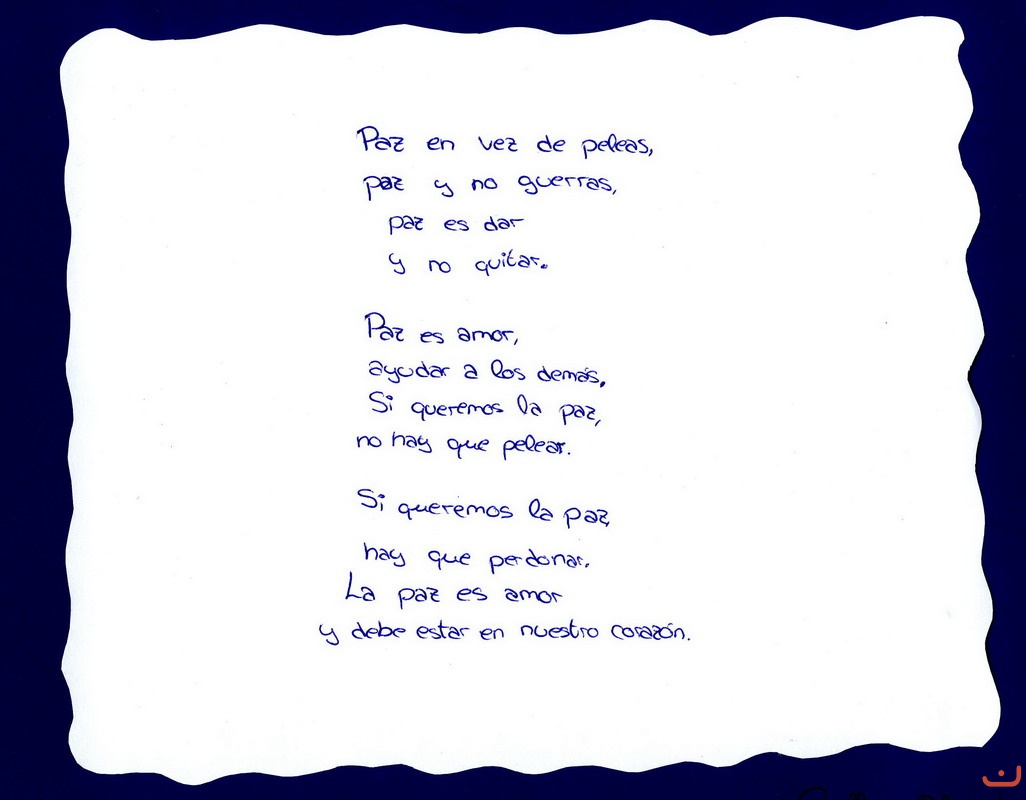 Paz en vez de peleas,
paz y no guerras,
paz es dar
y no quitar.
Paz es amor,
ayudar a los demás,
Si queremos la paz,
no hay que pelear.
Si queremos la paz,
hay que perdonar.
La paz es amor
y debe estar en nuestro corazón.